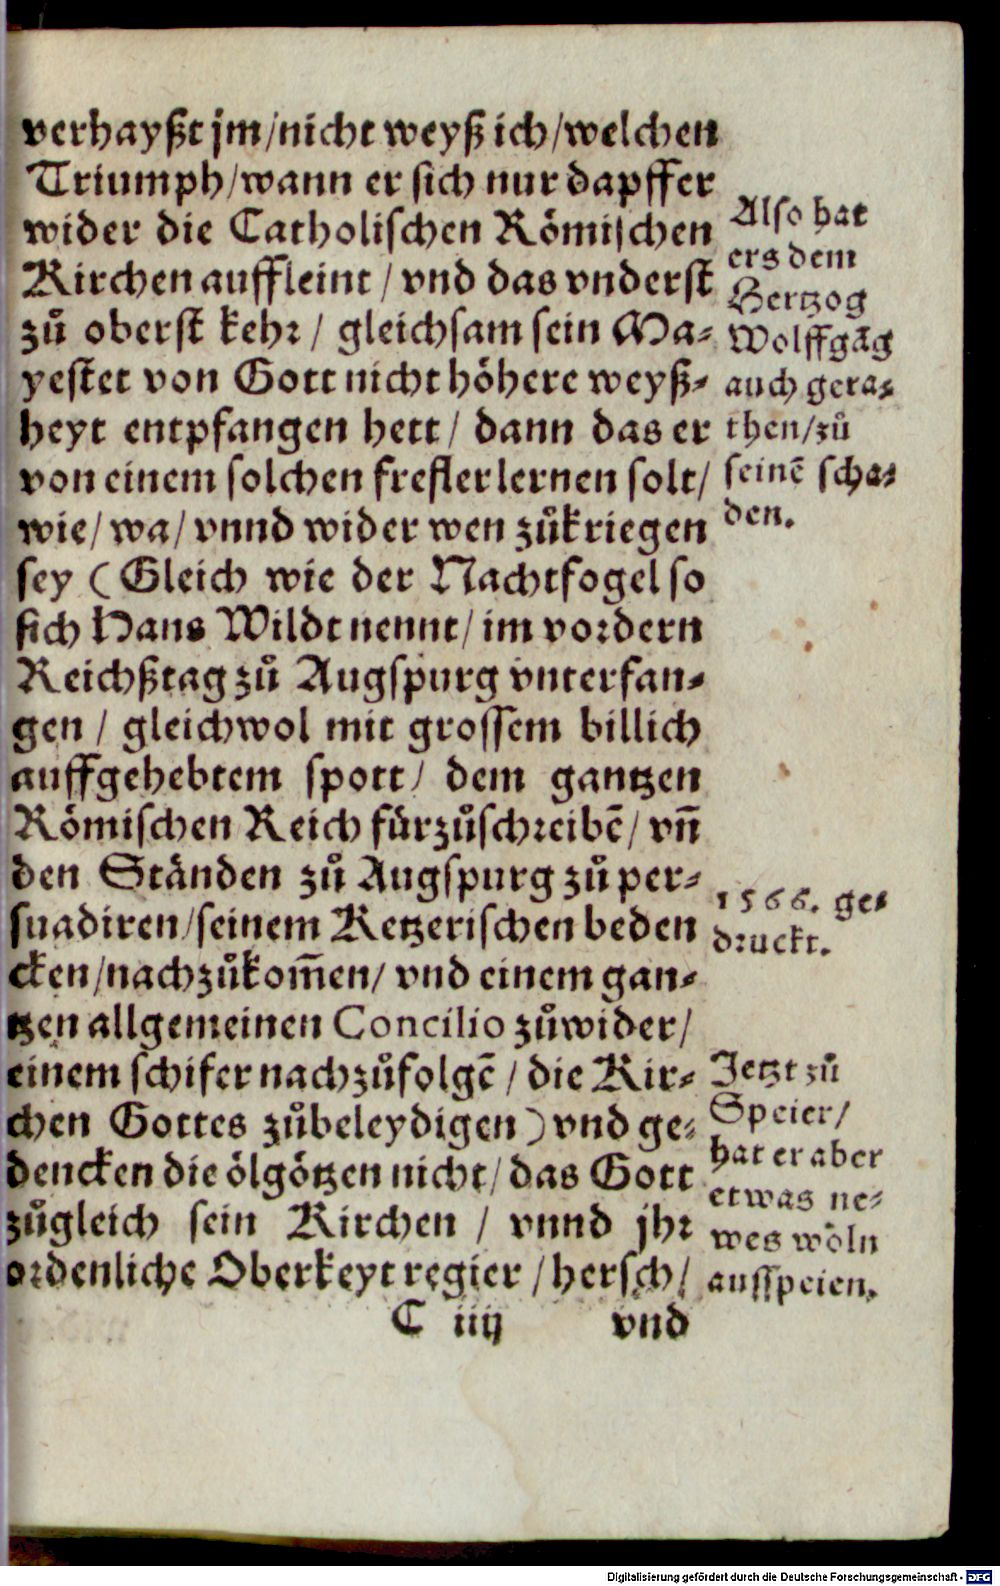 verhayßt jm/nicht weyß ich/welchen
Triumph/wann er sich nur dapffer
wider die Catholischen Römischen
Kirchen auffleint / vnd das vnderst
zů oberst kehr / gleichsam sein Ma-
yestet von Gott nicht höhere weyß-
heyt entpfangen hett / dann das er
von einem solchen frefler lernen solt/
wie/ wa/ vnnd wider wen zůkriegen
sey (Gleich wie der Nachtfogel so
sich Hans Wildt nennt/ im vordern
Reichßtag zů Augspurg vnterfan-
gen / gleichwol mit grossem billich
auffgehebtem spott/ dem gantzen
Römischen Reich fürzůschreibē/ vñ
den Ständen zů Augspurg zů per-
suadiren/seinem Ketzerischen beden
cken/nachzůkom̄en/ vnd einem gan-
tzen allgemeinen Concilio zůwider/
einem schifer nachzůfolgē / die Kir-
chen Gottes zůbeleydigen) vnd ge-
dencken die ölgötzen nicht/ das Gott
zůgleich sein Kirchen / vnnd jhr
ordenliche Oberkeyt regier / hersch/
C iiij vnd
Also hat
ers dem
Hertzog
Wolffgāg
auch gera-
then/zů
seinē scha-
den.
1566. ge-
druckt.
Jetzt zů
Speier/
hat er aber
etwas ne-
wes wöln
ausspeien.
Digitalisierung gefördert durch die Deutsche Forschungsgemeinschaft - DFG